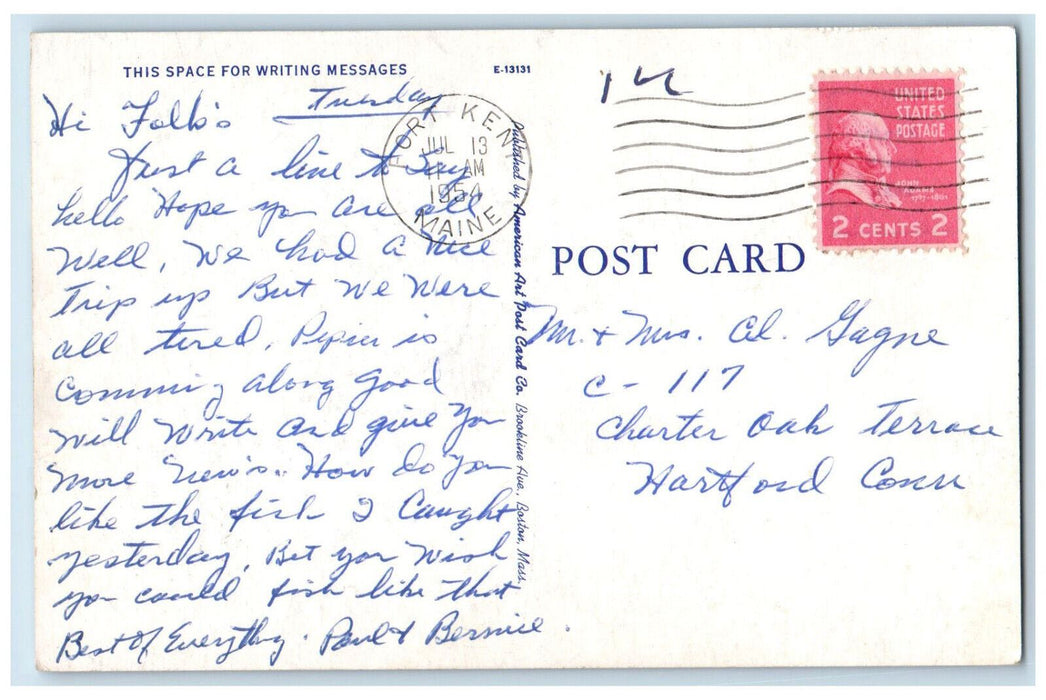 THIS SPACE FOR WRITING MESSAGES
E-13131
Tuesday
Hi Folk's
Just a line to Say
hello Hope you are all
Well, We had a Nice
Trip up But We Were
all tired, Pepier is
Comming along good
will Write and give you
more New's.. How do you
like the fish I Caught
yesterday, Bet you Wish
you could fish like that
Best Of Everything. Paul & Bernice.
Published by American Art Post Card Co. Brookline Ave., Boston, Mass.
FORT KENT
JUL 13
AM
1954
MAINE
UNITED
STATES
POSTAGE
JOHN
ADAMS
1797-1801
2 CENTS 2
POST CARD
Mr. + Mrs. Al. Gagne
C - 117
Charter Oak Terrace
Hartford Conn